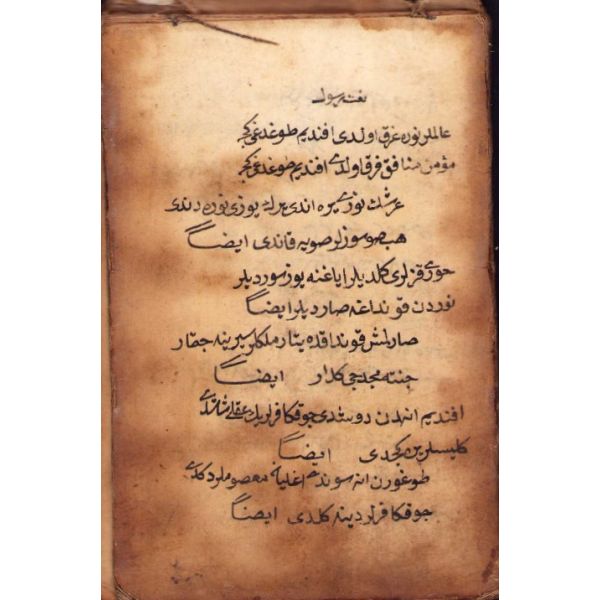 نعت رسول
عالملر نوره غرق اولدی افندیم طوغدغی کجه
مؤمن منافق فرق اولدی افندیم طوغدغی کجه
عرشك نوری یره اندی یر یوزی نوره دندی
هب صوسوزلر صویه قاندی ایضاً
حوری قزلری کلدیلر ایاغنه یوز سوردیلر
نوردن قونداغه صاردیلر ایضاً
صارلمش قونداقده یتار ملکلر سیرینه چقار
جنته مجدجی کلدار ایضاً
افندیم انه‌دن دوشدی چوق کافرلرك عقلی شاشدی
کلیسالر یره کچدی ایضاً
طوغورن انه سوندی اغلیان معصوملر دكدی
چوق کافرلر دینه کلدی ایضاً